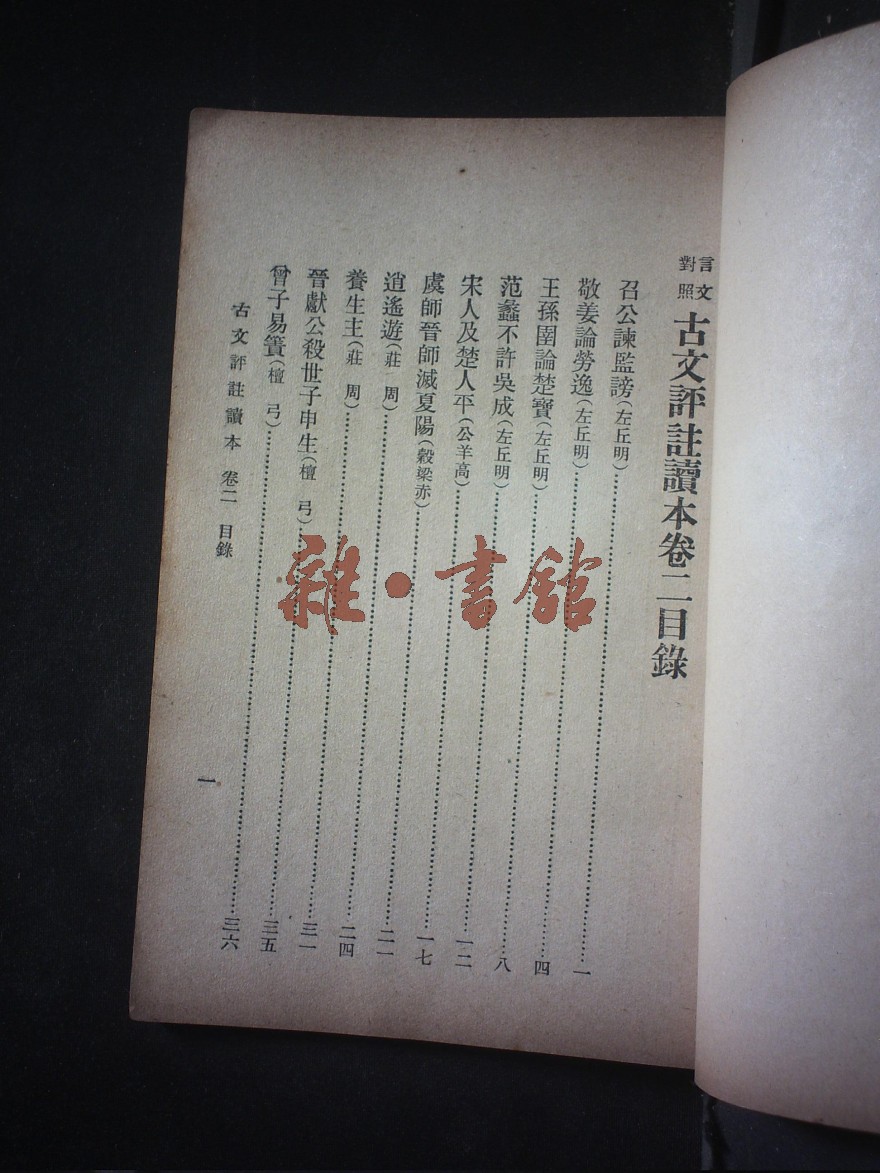 言文對照 古文評註讀本卷二目錄
召公諫監謗(左丘明)……一
敬姜論勞逸(左丘明)……四
王孫圉論楚寶(左丘明)……八
范蠡不許吳成(左丘明)……一二
宋人及楚人平(公羊高)……一七
虞師晉師滅夏陽(穀梁赤)……二一
逍遙遊(莊 周)……二四
養生主(莊 周)……三一
晉獻公殺世子申生(檀 弓)……三五
曾子易簀(檀 弓)……三六
古文評註讀本 卷二 目錄
一
雜·書館